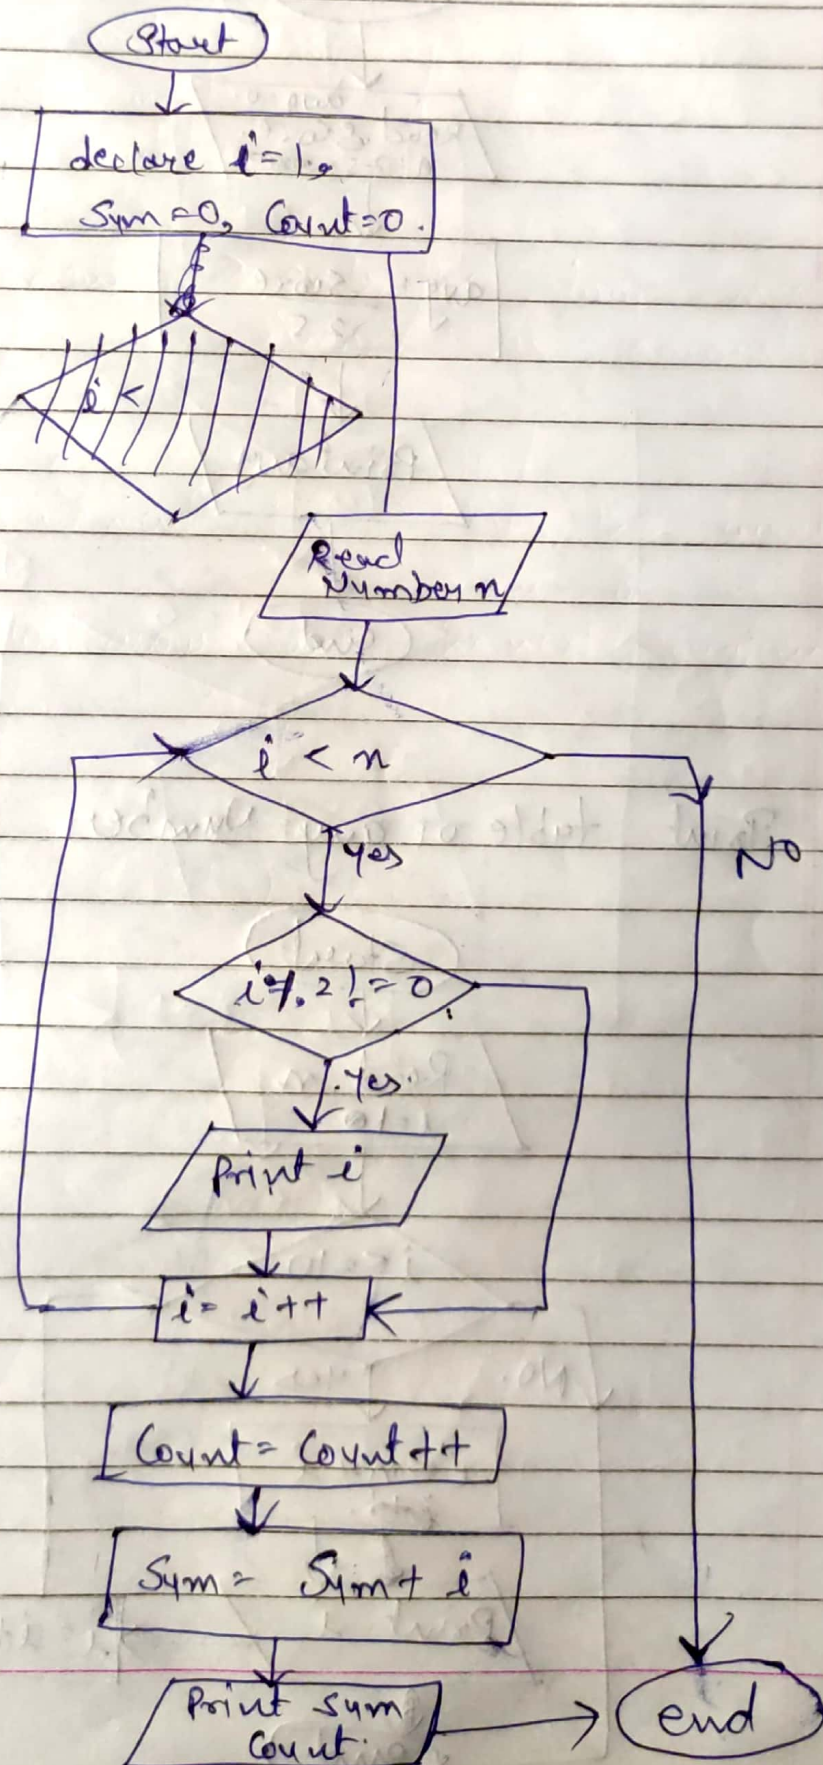 Start
declare i=1,
Sum=0, Count=0.
i <
Read
Number n
i < n
yes
No
i%2!=0
yes.
Print i
i= i++
Count= Count++
Sum= Sum+ i
Print sum
Count.
end